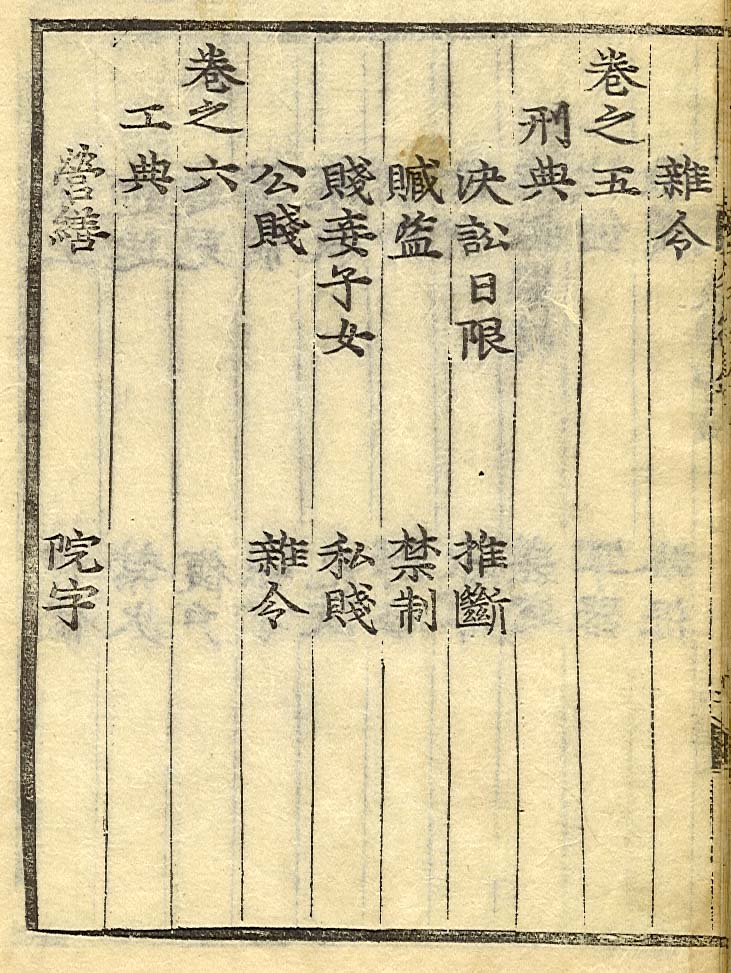 雜令
卷之五
刑典
决訟日限 推斷
贓盜 禁制
賤妾子女 私賤
公賤 雜令
卷之六
工典
營繕 院宇